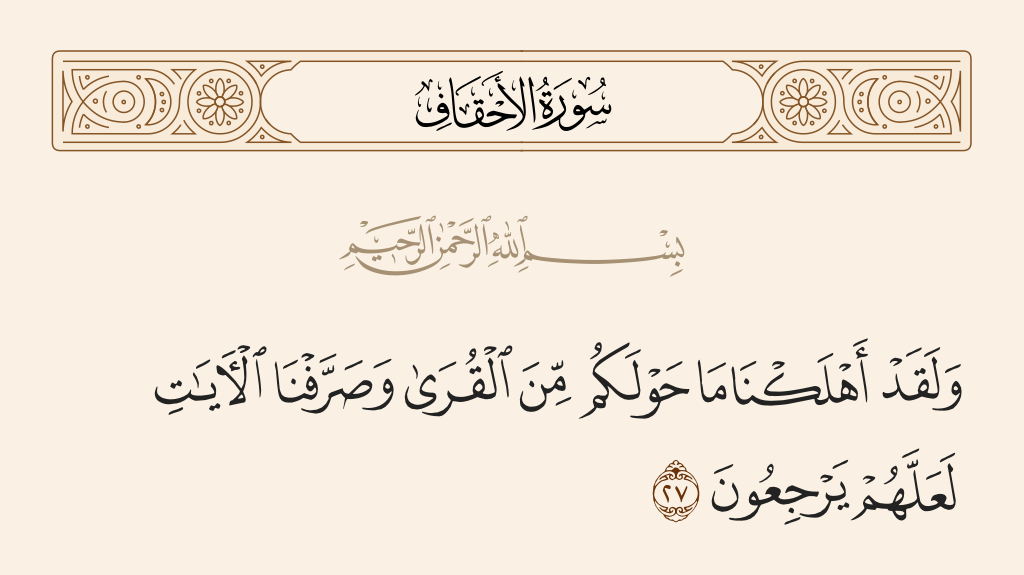 سُورَةُ الأَحْقَافِ
بِسْمِ ٱللَّهِ ٱلرَّحْمَٰنِ ٱلرَّحِيمِ
وَلَقَدْ أَهْلَكْنَا مَا حَوْلَكُم مِّنَ ٱلْقُرَىٰ وَصَرَّفْنَا ٱلْآيَـٰتِ
لَعَلَّهُمْ يَرْجِعُونَ ٢٧